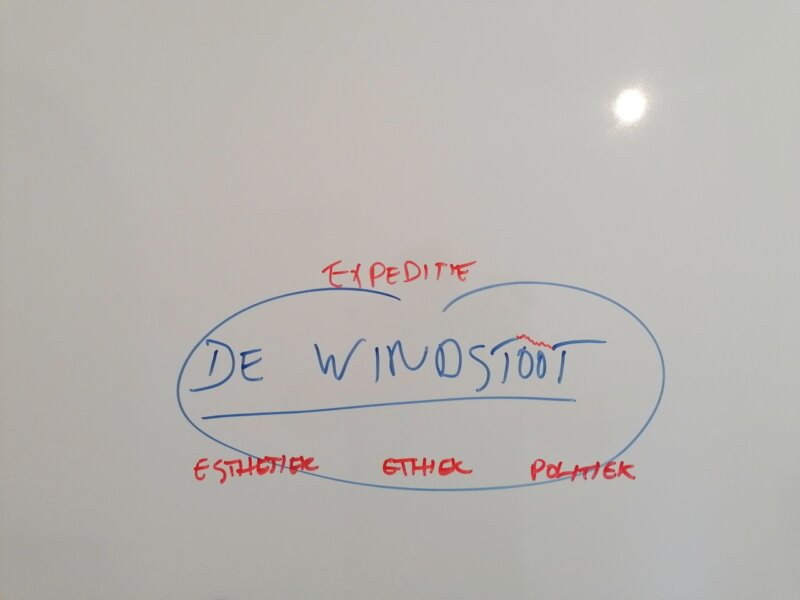 EXPEDITIE
DE WINDSTOOT
ESTHETIEK ETHIEK POLITIEK